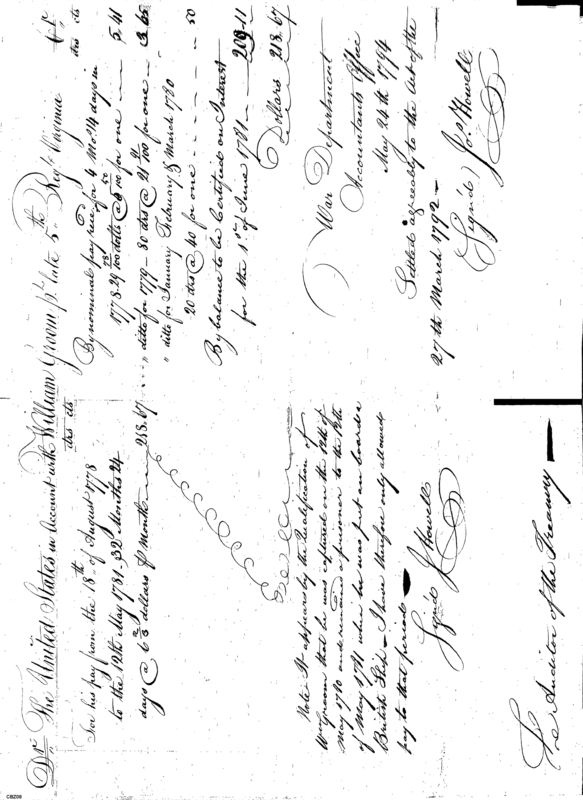 Dr. The United States in Account with William Groom pt. late 5th Regt. Virginia Cr.
drs cts
drs cts
For his pay from the 18th of August 1778
to the 12th May 1781 - 32 Months 24
days @ 6 2/3 dollars P Month 218.67
By nominal pay recd. for 4 Mo. 14 days in
1778. 29 78/100 dolls @ 5 50/100 for one 5.41
" ditto for 1779 - 80 drs @ 21 91/100 for one 3.65
" ditto for January February & March 1780
20 drs @ 40 for one 50
By balance to be Certified on Interest
for the 1st of June 1781 209.11
Dollars 218.67
Dollars
Note It appears by the Qualification of
Wm Groom that he was captured on the 12th of
May 1780 and remained a prisoner to the 12th
of May 1781 when he was put on board a
British Ship - I have therefore only allowed
pay to that period
Signed J Howell
War Department
Accountants Office
May 24th 1794
Settled agreeably to the Act of the
27th March 1792
(Signed) Jo. Howell
The Auditor of the Treasury
CBZ09